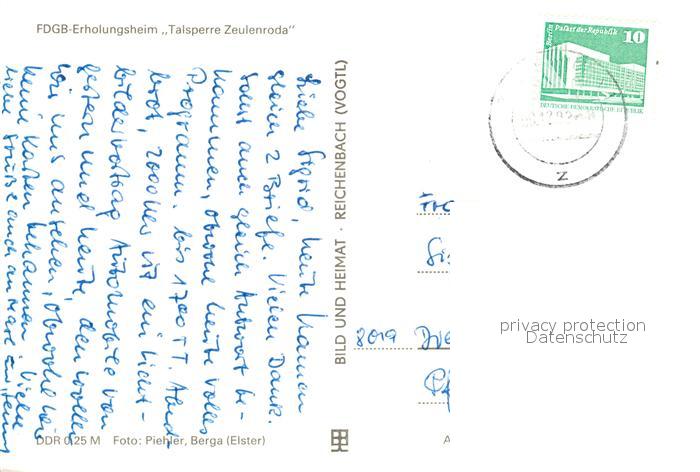 FDGB-Erholungsheim „Talsperre Zeulenroda"
Liebe Sigrid, heute kamen
gleich 2 Briefe. Vielen Dank.
Sollst auch gleich Antwort be-
kommen, obwohl heute volles
Programm. bis 17 00 TT. Abend-
brot, 20 00 Uhr ist ein Licht-
bildervortrag Automobile von
gestern und heute, den wollen
wir uns ansehen, obwohl wir
keine Karten bekamen. Viele
liebe Grüße auch an
BILD UND HEIMAT · REICHENBACH (VOGTL)
DDR 0,25 M Foto: Piehler, Berga (Elster)
Berlin Palast der Republik 10
DEUTSCHE DEMOKRATISCHE REPUBLIK
z
8019
privacy protection
Datenschutz
A